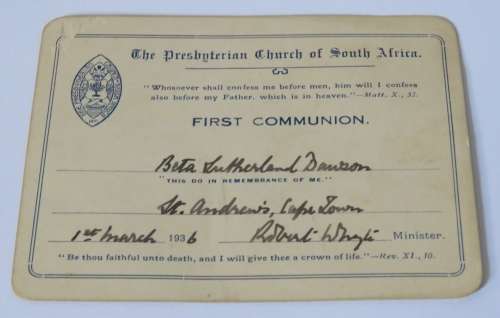 The Presbyterian Church of South Africa.
"Whosoever shall confess me before men, him will I confess
also before my Father, which is in heaven."—Matt. X., 32.
FIRST COMMUNION.
Beta Sutherland Dawson
"THIS DO IN REMEMBRANCE OF ME."
St. Andrew's, Cape Town
1st March 1936 Robert Whyte Minister.
"Be thou faithful unto death, and I will give thee a crown of life."—Rev. XI., 10.